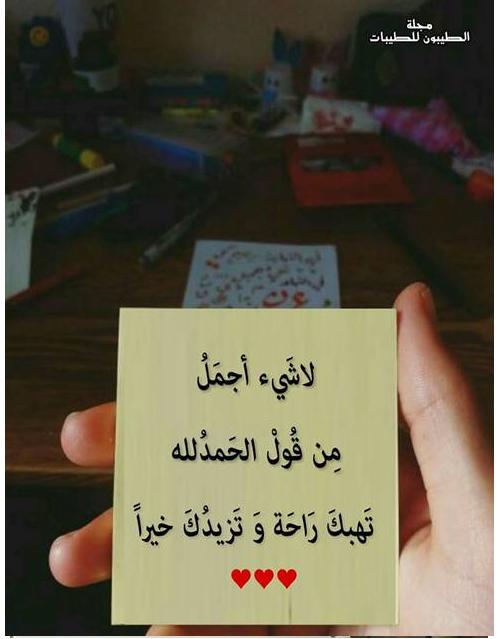 مجلة
الطيبون للطيبات
لاشَيء أجمَلُ
مِن قُولْ الحَمدُلله
تَهبكَ رَاحَة وَ تَزيدُكَ خيراً